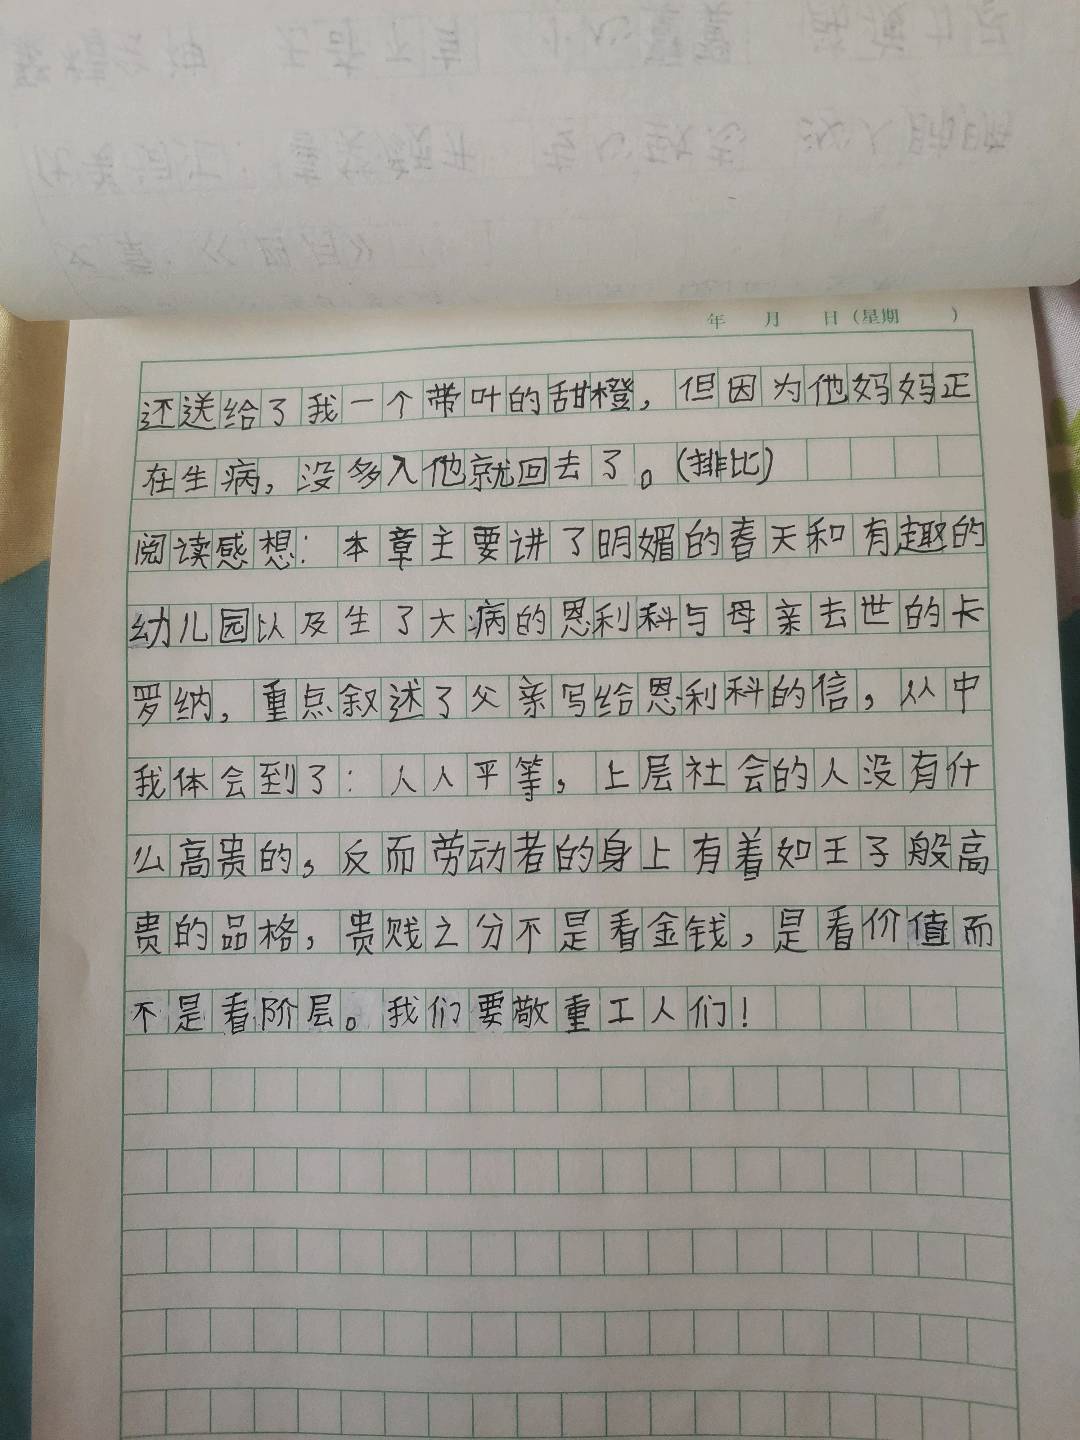 年 月 日（星期 ）
还送给了我一个带叶的甜橙，但因为他妈妈正
在生病，没多入他就回去了。（排比）
阅读感想：本章主要讲了明媚的春天和有趣的
幼儿园以及生了大病的恩利科与母亲去世的卡
罗纳，重点叙述了父亲写给恩利科的信，从中
我体会到了：人人平等，上层社会的人没有什
么高贵的，反而劳动者的身上有着如王子般高
贵的品格，贵贱之分不是看金钱，是看价值而
不是看阶层。我们要敬重工人们！